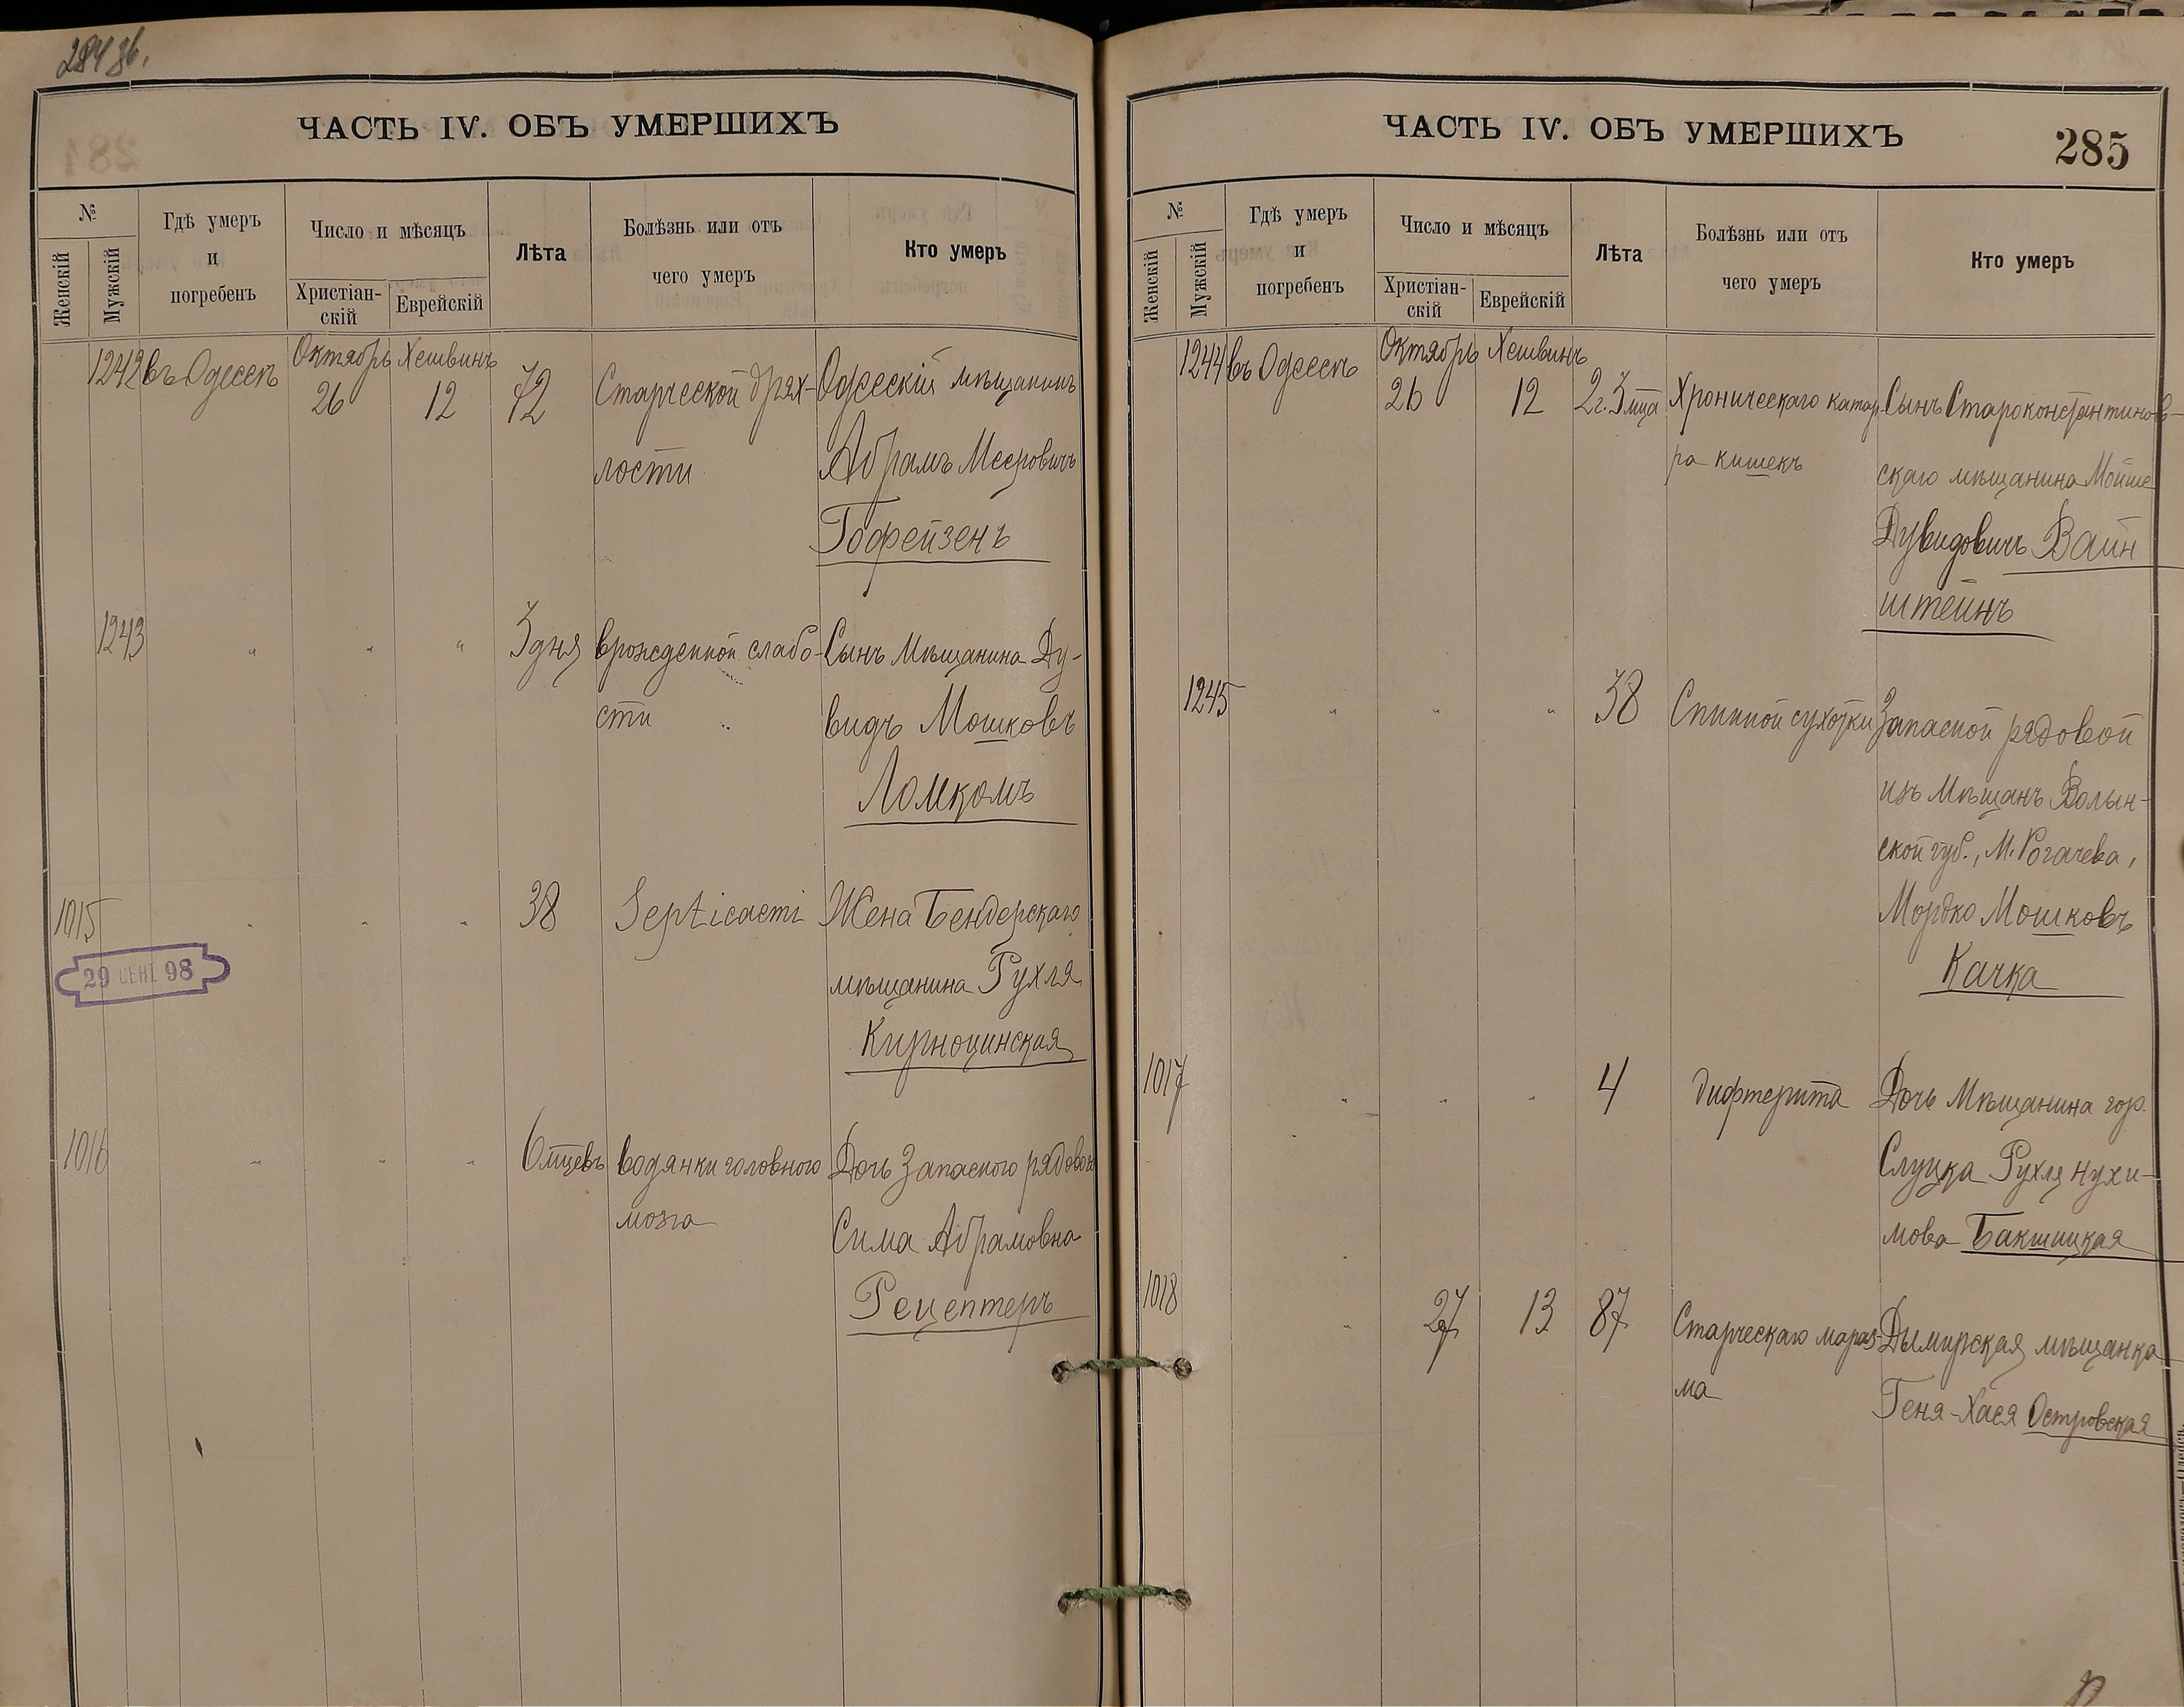 284 об.
ЧАСТЬ IV. ОБЪ УМЕРШИХЪ
№
Женскій
Мужскій
Гдѣ умеръ
и
погребенъ
Число и мѣсяцъ
Христіан-
скій
Еврейскій
Лѣта
Болѣзнь или отъ
чего умеръ
Кто умеръ
1242 въ Одессѣ Октябрь 26 Хешвинъ 12 72 Старческой дрях- Одесскій мѣщанинъ
лости Абрамъ Мееровичъ
Гофейзенъ
1243 " " " 3 дня врожденной слабо- Сынъ Мѣщанина Ду-
сти видъ Мошковъ
Ломкомъ
1015 " " " 38 Septicaemi Жена Бендерскаго
29 СЕНТ 98
мѣщанина Рухля
1016 " " " 6 мцевъ водянки головного Дочь Запасного рядового
мозга Сима Абрамовна
Рецептеръ
ЧАСТЬ IV. ОБЪ УМЕРШИХЪ
285
№
Женскій
Мужскій
Гдѣ умеръ
и
погребенъ
Число и мѣсяцъ
Христіан-
скій
Еврейскій
Лѣта
Болѣзнь или отъ
чего умеръ
Кто умеръ
1244 въ Одессѣ Октябрь 26 Хешвинъ 12 2 г. 3 мца Хроническаго катар- Сынъ Староконстантинов-
ра кишекъ скаго мѣщанина Мойше
Дувидовичъ Вайн
штейнъ
1245 " " " 38 Спинной сухотки Запасной рядовой
изъ Мѣщанъ Волын-
ской губ., М. Рогачева,
Мордко Мошковъ
Качка
1017 " " " 4 дифтерита Дочь Мѣщанина гор.
Слуцка Рухля Нухи-
мова Бакшицкая
1018 " 27 13 87 Старческаго мараз- Дымирская мѣщанка
ма Геня-Хася Островская